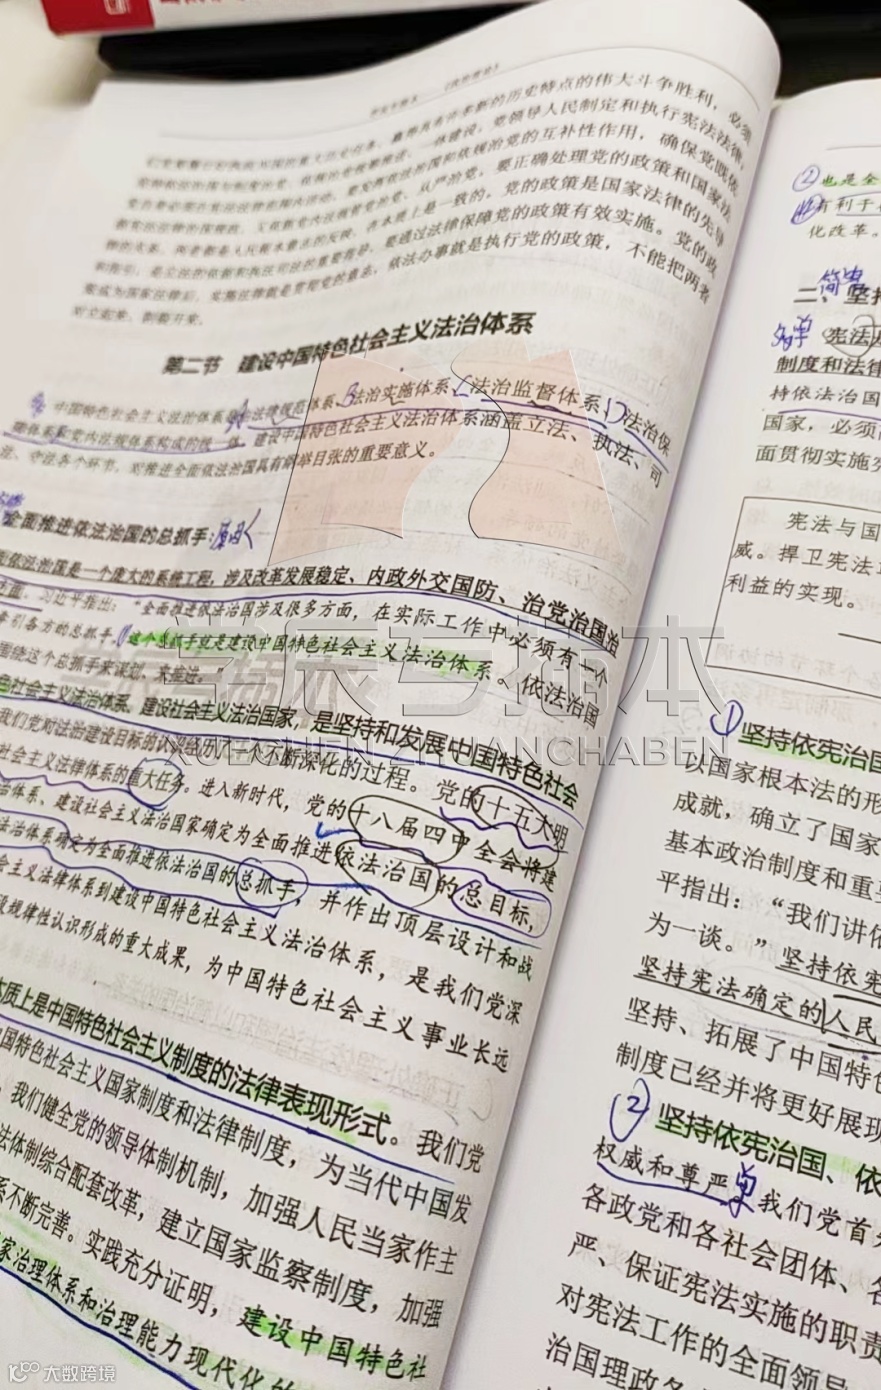 的历史特点的伟大斗争胜利，必须
党领导人民制定和执行宪法法律，
依规治党的互补性作用，确保党既依
要正确处理党的政策和国家法
党的政策是国家法律的先导
和指引，是立法的依据和执法司法的重要指导，要通过法律保障党的政策有效实施。党的政
策成为国家法律后，实施法律就是贯彻党的意志，依法办事就是执行党的政策，不能把两者
对立起来、割裂开来。
第二节 建设中国特色社会主义法治体系
中国特色社会主义法治体系是由法律规范体系、法治实施体系、法治监督体系、法治保
障体系和党内法规体系构成的统一体。建设中国特色社会主义法治体系涵盖立法、执法、司
法、守法各个环节，对推进全面依法治国具有纲举目张的重要意义。
全面推进依法治国的总抓手
面依法治国是一个庞大的系统工程，涉及改革发展稳定、内政外交国防、治党治国治
方面。习近平指出：“全面推进依法治国涉及很多方面，在实际工作中必须有一个
牵引各方的总抓手，这个总抓手就是建设中国特色社会主义法治体系。依法治国
围绕这个总抓手来谋划、来推进。”
色社会主义法治体系、建设社会主义法治国家，是坚持和发展中国特色社会
我们党对法治建设目标的认识经历了一个不断深化的过程。党的十五大明
社会主义法律体系的重大任务。进入新时代，党的十八届四中全会将建
治体系、建设社会主义法治国家确定为全面推进依法治国的总目标，
法治体系确定为全面推进依法治国的总抓手，并作出顶层设计和战
会主义法律体系到建设中国特色社会主义法治体系，是我们党深
规律性认识形成的重大成果，为中国特色社会主义事业长远
本质上是中国特色社会主义制度的法律表现形式。我们党
中国特色社会主义国家制度和法律制度，为当代中国发
我们健全党的领导体制机制，加强人民当家作主
法体制综合配套改革，建立国家监察制度，加强
系不断完善。实践充分证明，建设中国特色社
家治理体系和治理能力现代化的
②也是全
有利于
化改革。
简单
二、坚持
宪法
制度和法律
持依法治国
国家，必须
面贯彻实施宪
宪法与国
威。捍卫宪法
利益的实现。
① 坚持依宪治国
以国家根本法的形
成就，确立了国家
基本政治制度和重要
平指出：“我们讲依
为一谈。”坚持依宪
坚持宪法确定的人民
坚持、拓展了中国特色
制度已经并将更好展现
② 坚持依宪治国、依
权威和尊严 单 我们党首先
各政党和各社会团体、各
严、保证宪法实施的职责
对宪法工作的全面领导
治国理政各
学辰专插本
XUECHEN ZHUANCHABEN
大数跨境